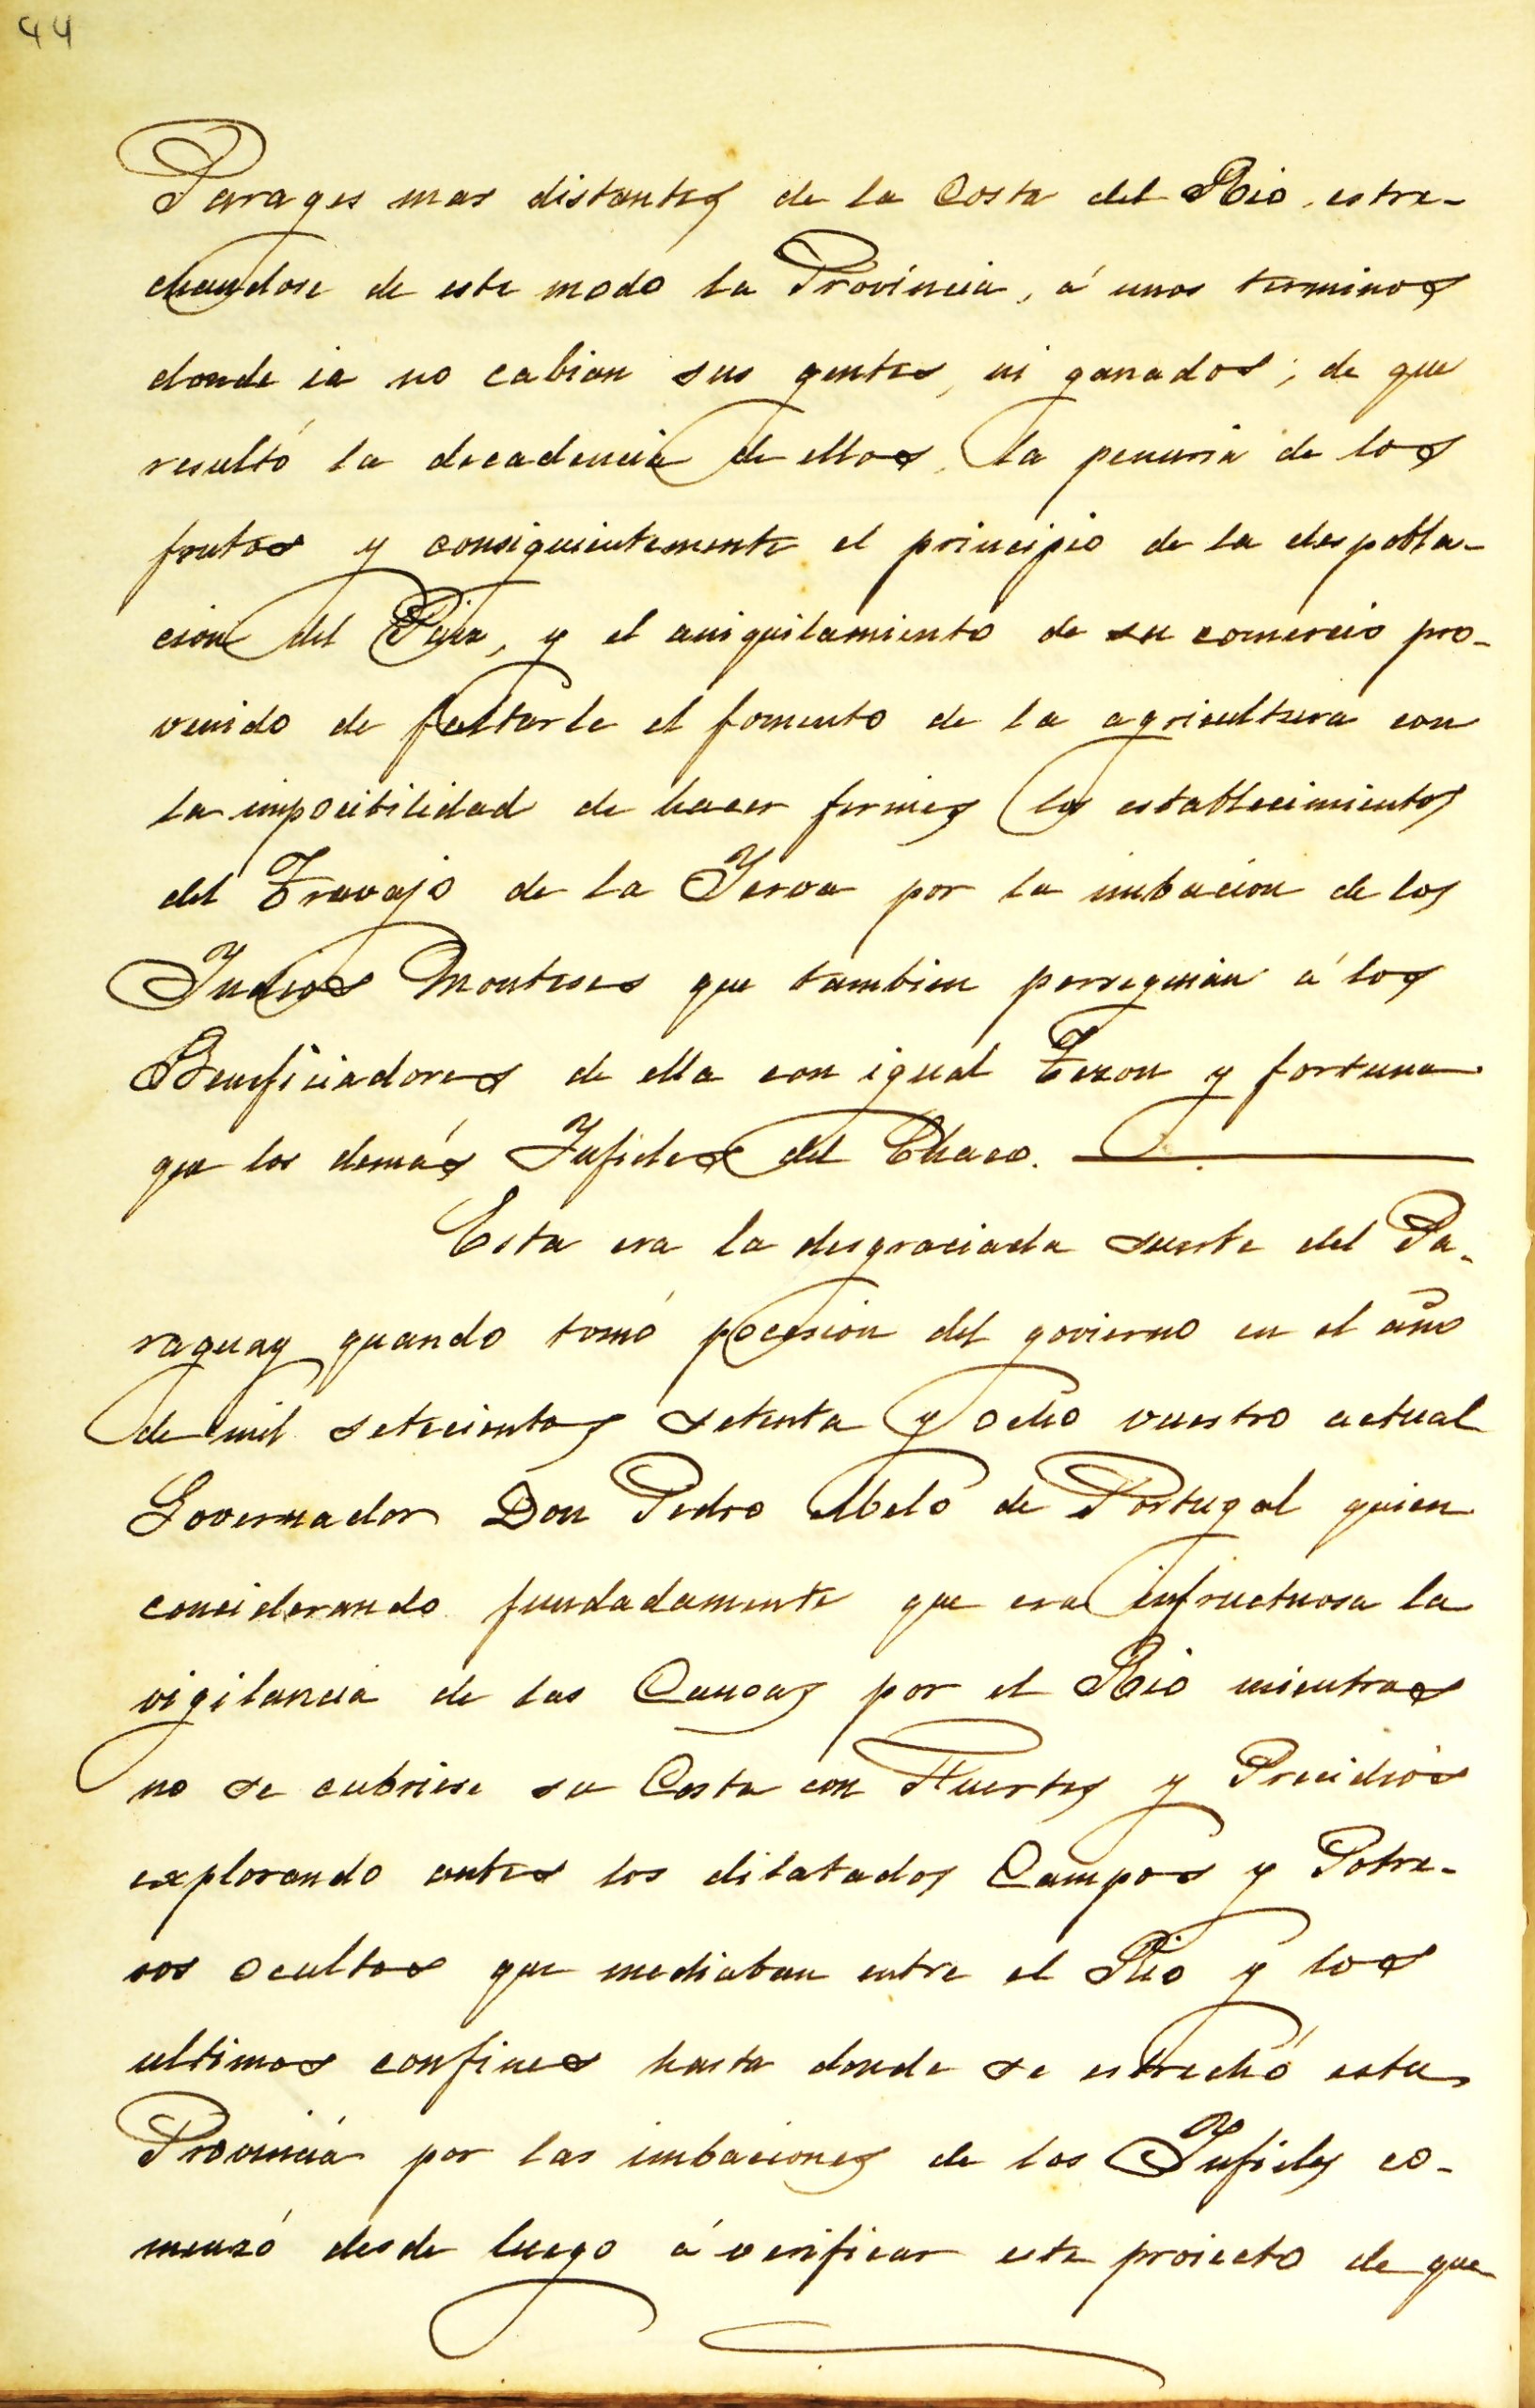 44
Parages mas distantes de la Costa del Rio, estre-
chandose de este modo la Provincia, á unos terminos
donde ia no cabian sus gentes, ni ganados; de que
resultó la decadencia de ellos, la penuria de los
frutos y consiguientemente el principio de la despobla-
cion del Paiz, y el aniquilamiento de su comercio pro-
venido de faltarle el fomento de la agricultura con
la imposibilidad de hacer firmes los establecimientos
del Travajo de la Yerva por la imbacion de los
Indios Monteses que tambien perseguian á los
Beneficiadores de ella con igual Tezon y fortuna
que los demás Infieles del Chaco.
Esta era la desgraciada suerte del Pa-
raguay quando tomó pocesion del govierno en el año
de mil setecientos setenta y ocho vuestro actual
Governador Don Pedro Melo de Portugal quien
considerando fundadamente que era infructuosa la
vigilancia de las Canoas por el Rio mientras
no se cubriese su Costa con Fuertes y Precidios
explorando antes los dilatados Campos y Potre-
ros ocultos que mediaban entre el Rio y los
ultimos confines hasta donde se estrechó esta
Provincia por las imbaciones de los Infieles co-
menzó desde luego á verificar este proiecto de que